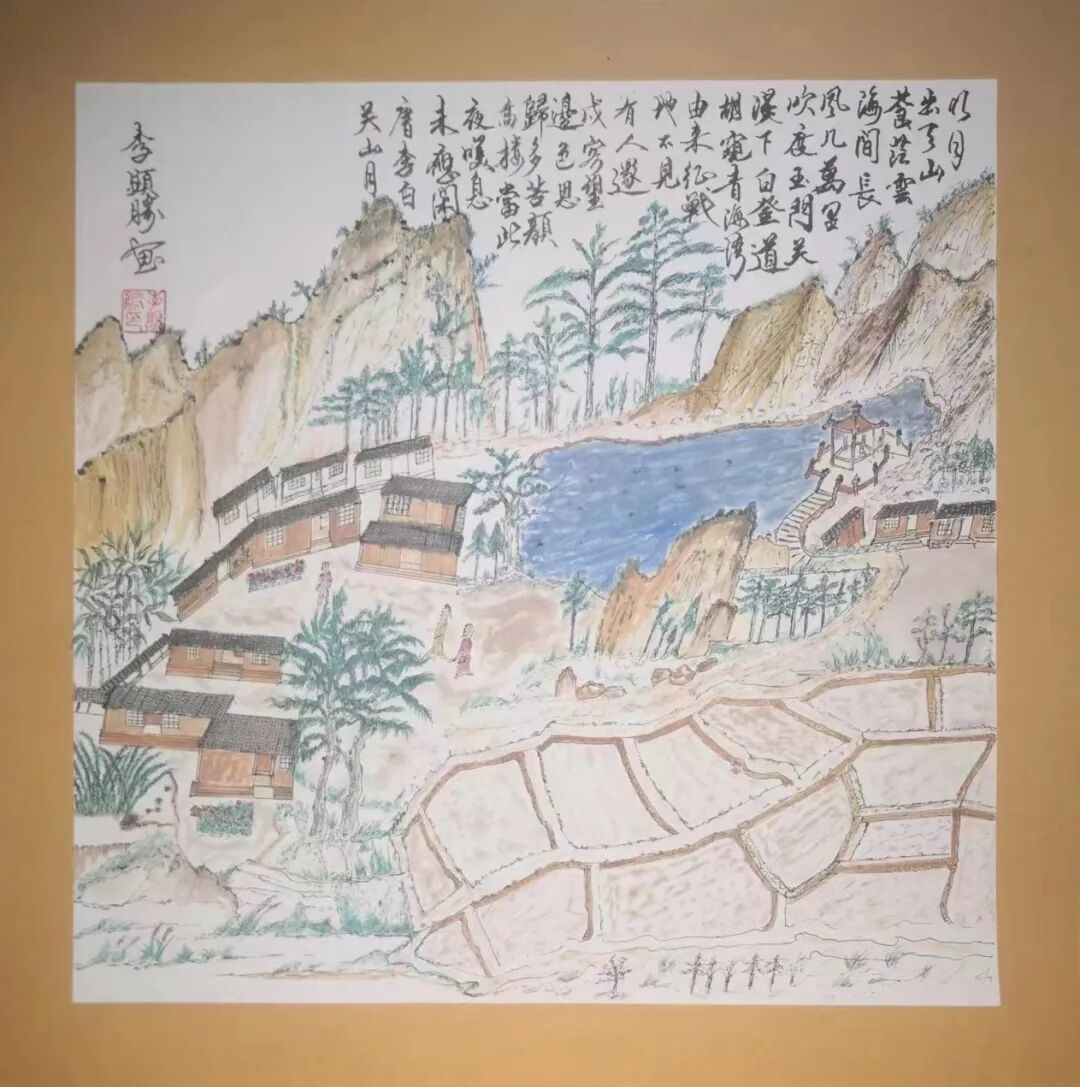 明月
出天山
蒼茫雲
海間長
風几萬里
吹度玉門关
漢下白登道
胡窺青海湾
由来征戰
地不見
有人還
戍客望
邊色思
歸多苦顏
高楼當此
夜嘆息
未應闲
唐李白
关山月
李顕勝画